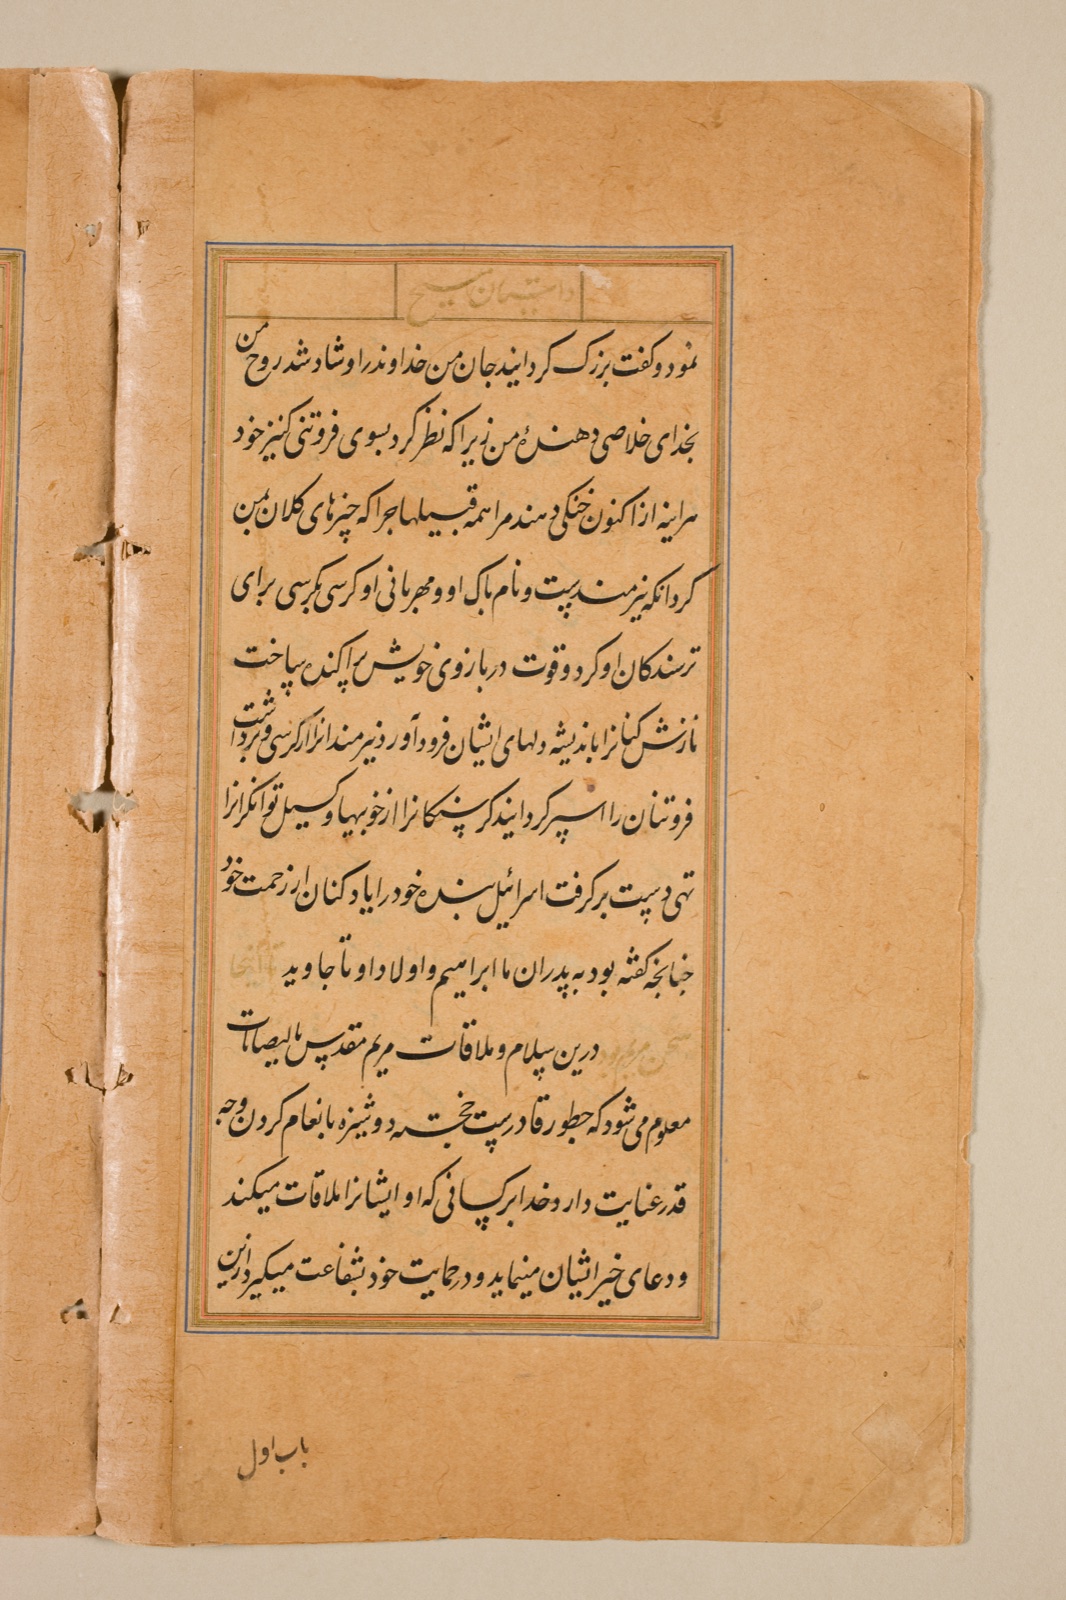 داستان مسیح
نمود و کفت بزرک کردانید جان من خداوند را و شاد شد روح من
بخدای خلاصی دهندهٔ من زیرا که نظر کرد بسوی فروتنی کنیز خود
هراینه از اکنون خنکی دهند مرا همه قبیلها چرا که چیزهای کلان بمن
کرد انکه نیرمندست و نام پاک او و مهربانی او کرسی بکرسی برای
ترسندکان او کرد و قوت در بازوی خویش پراکنده ساخت
نازش کنانرا باندیشه دلهای ایشان فرود آورد نیرمندانرا از کرسی و برداشت
فروتنان را سیر کردانید کرسنکانرا از خوبیها و کسیل توانکرانرا
تهی دست بر کرفت اسرائیل بنده خود را یاد کنان از رحمت خود
چنانچه کفته بود به پدران ما ابراهیم و اولاد او تا جاوید تا اینجا
سخن مریم بود درین سلام و ملاقات مریم مقدس با لیصابات
معلوم می شود که چطور قادرست خجسته دوشیزه بانعام کردن و چه
قدر عنایت دارد خدا بر کسانی که او ایشانرا ملاقات میکند
و دعای خیر ایشان مینماید و در حمایت خود بشفاعت میکیرد ازین
باب اول